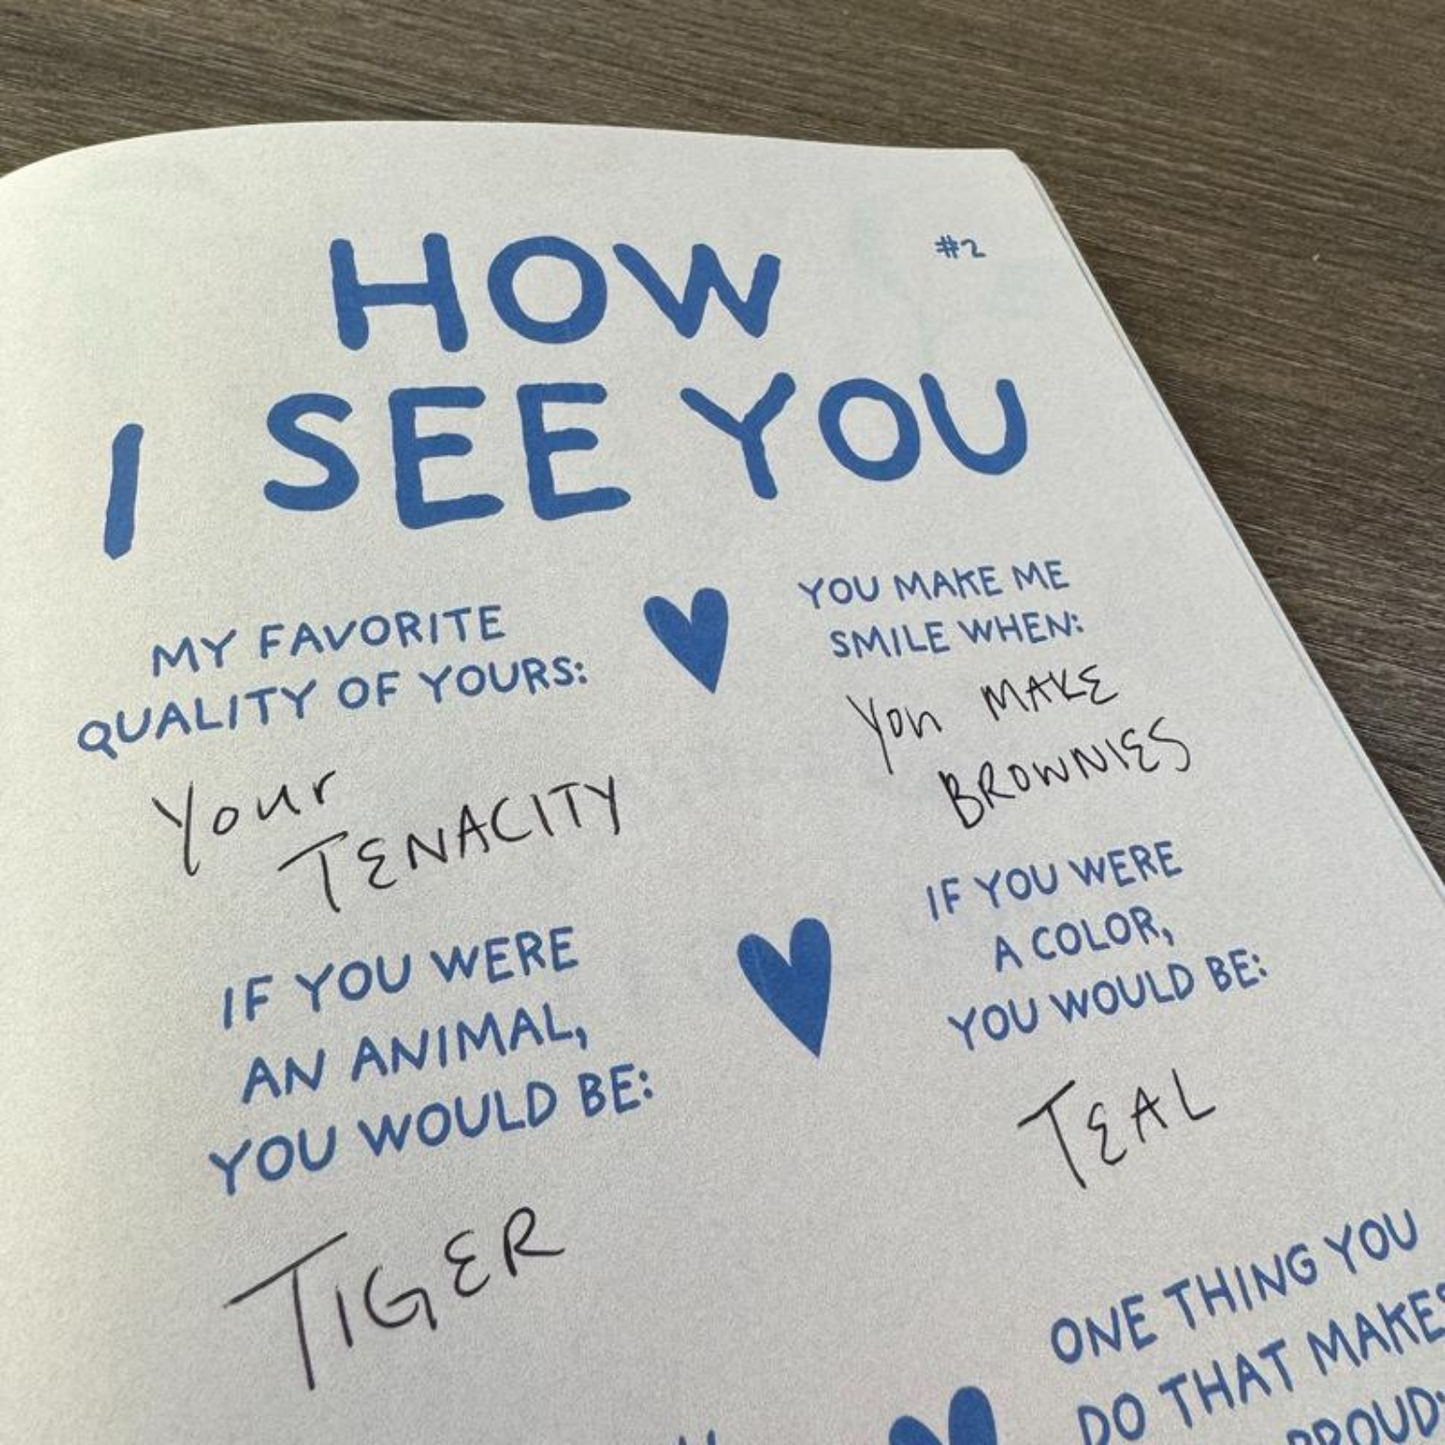 #2
HOW
I SEE YOU
MY FAVORITE
QUALITY OF YOURS:
Your
TENACITY
YOU MAKE ME
SMILE WHEN:
You MAKE
BROWNIES
IF YOU WERE
AN ANIMAL,
YOU WOULD BE:
TIGER
IF YOU WERE
A COLOR,
YOU WOULD BE:
TEAL
ONE THING YOU
DO THAT MAKES
PROUD: